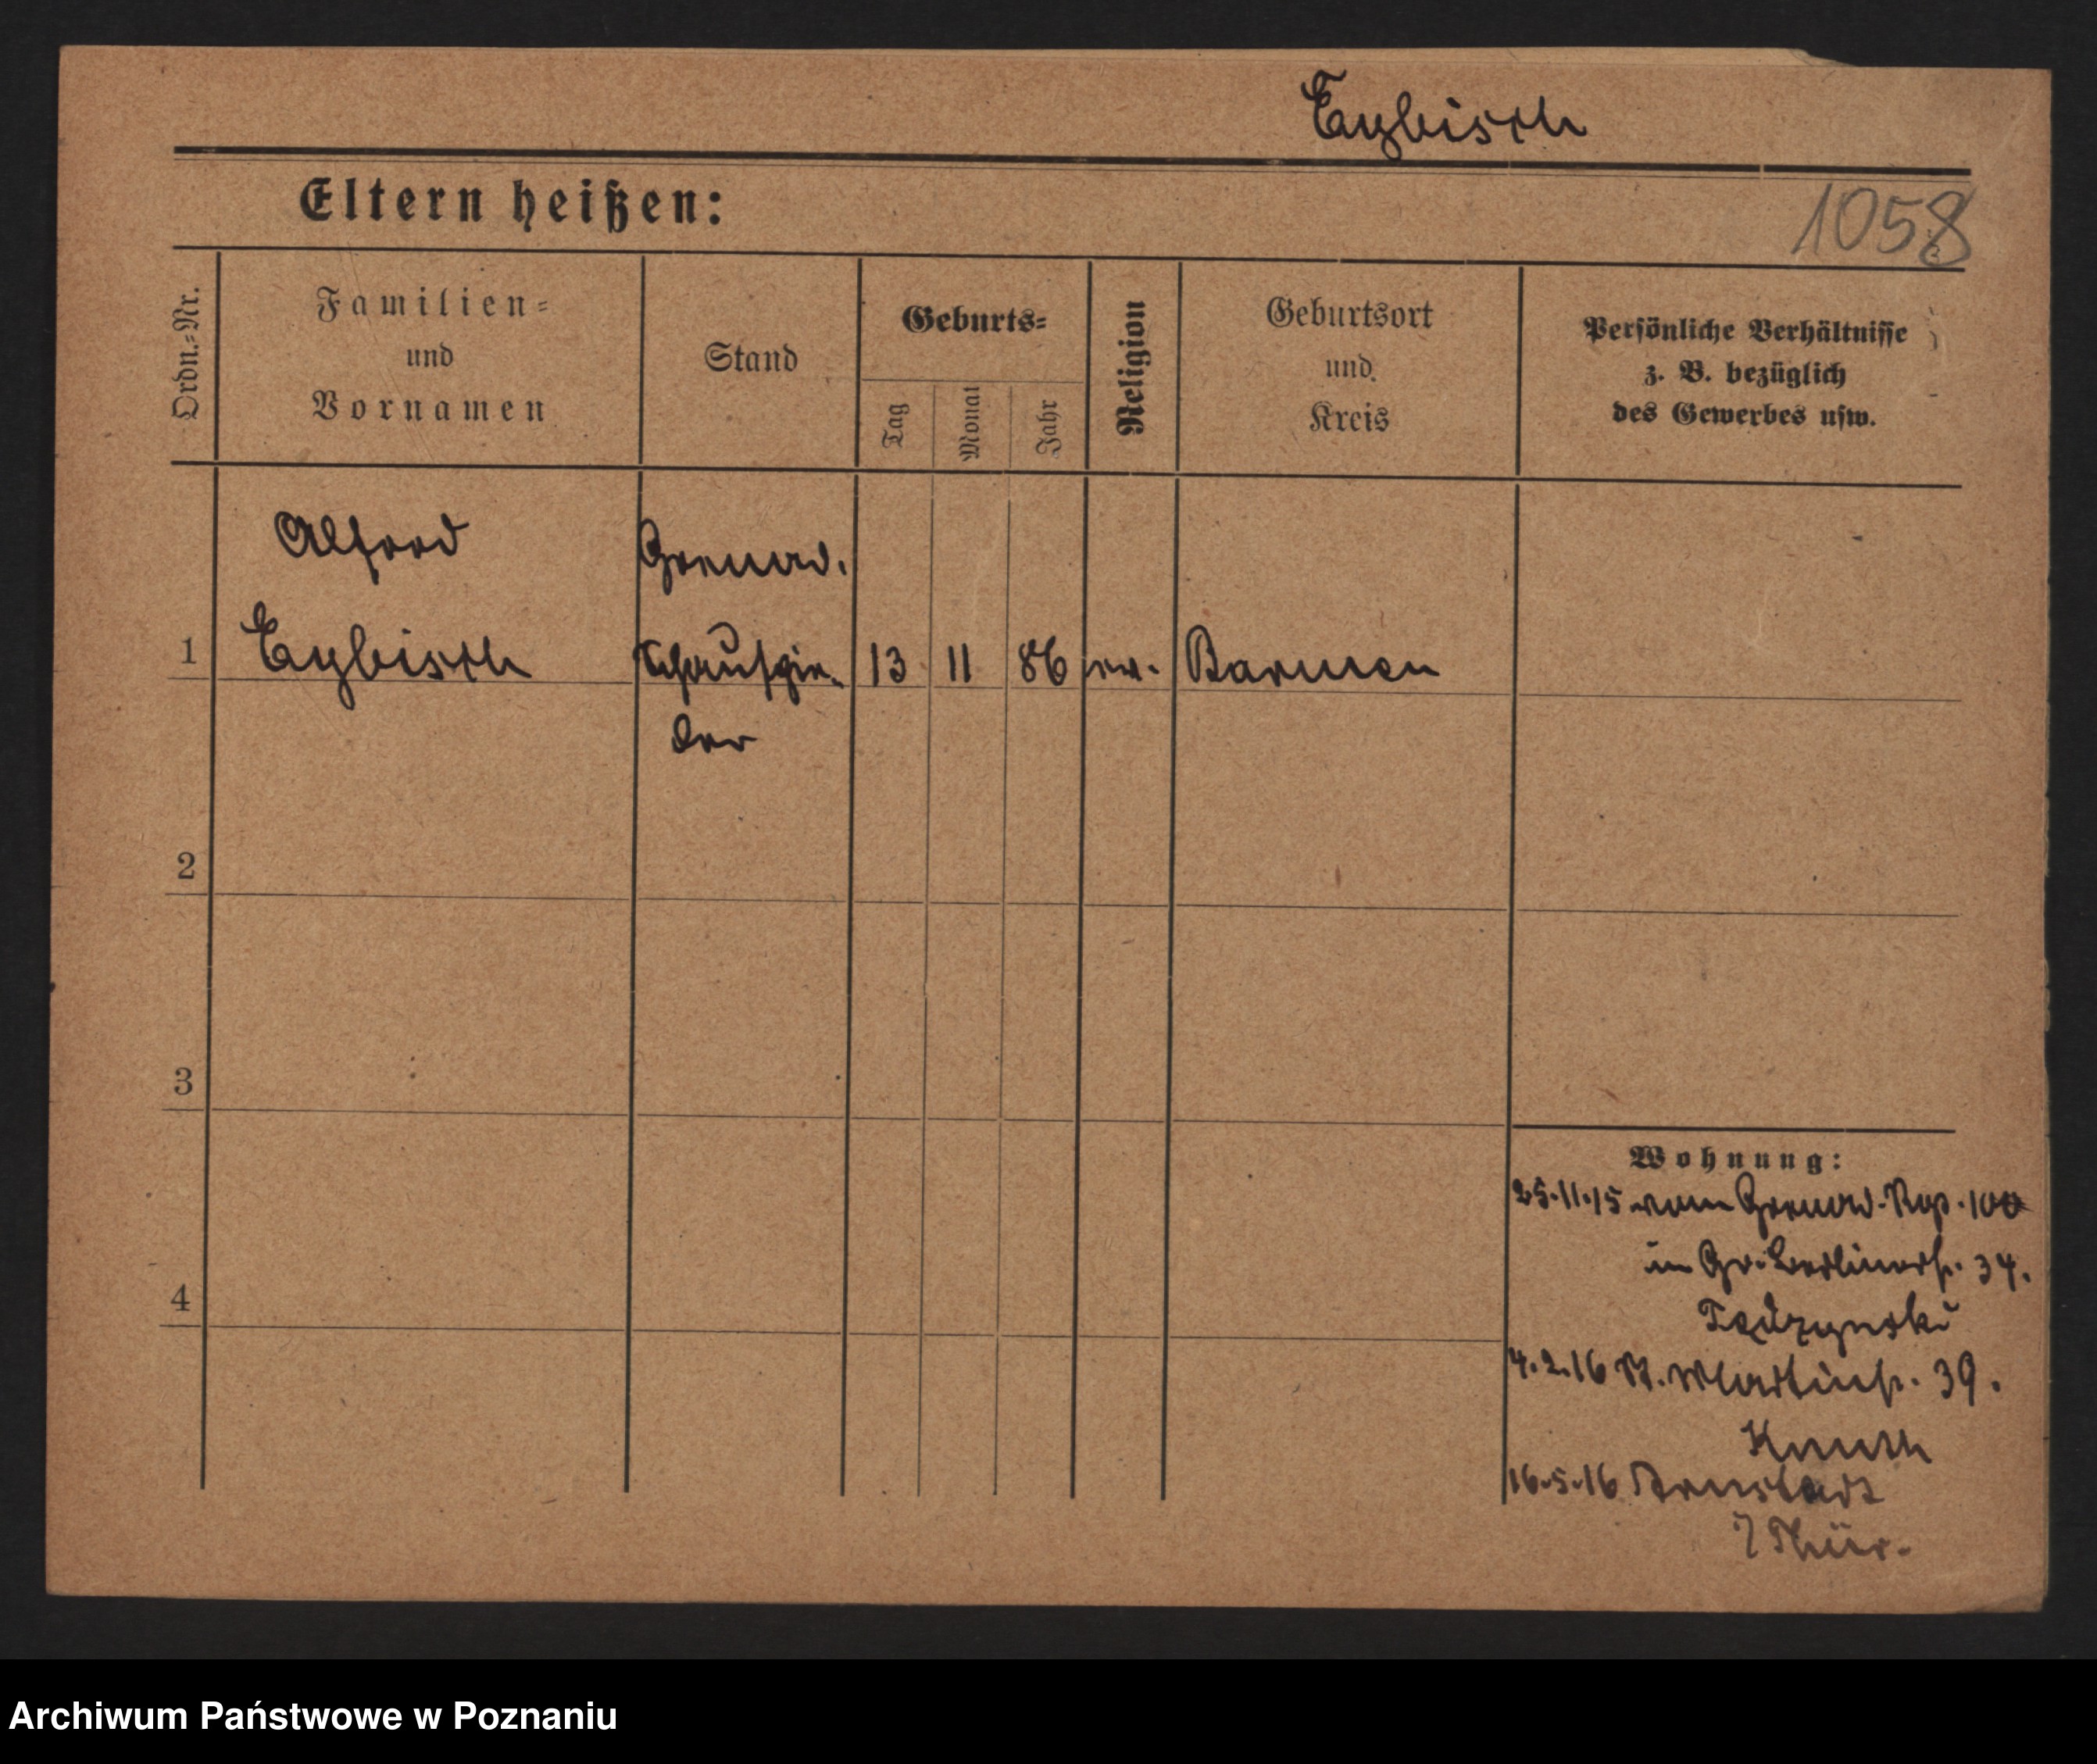 Eybisch
Eltern heißen:
1058
Ordn.-Nr.
Familien-
und
Vornamen
Stand
Geburts-
Tag
Monat
Jahr
Religion
Geburtsort
und
Kreis
Persönliche Verhältnisse
z. B. bezüglich
des Gewerbes usw.
Alfred
Grenad.
1 Eybisch 13 11 86 ev. Barmen
2
3
4
Wohnung:
25.11.15 vom Grenad. Rgt.
in Gr. Berlinerstr. 34.
4.2.16 St. Martinstr. 39.
Knuth
16.5.16 Arnstadt
Thür.
Archiwum Państwowe w Poznaniu